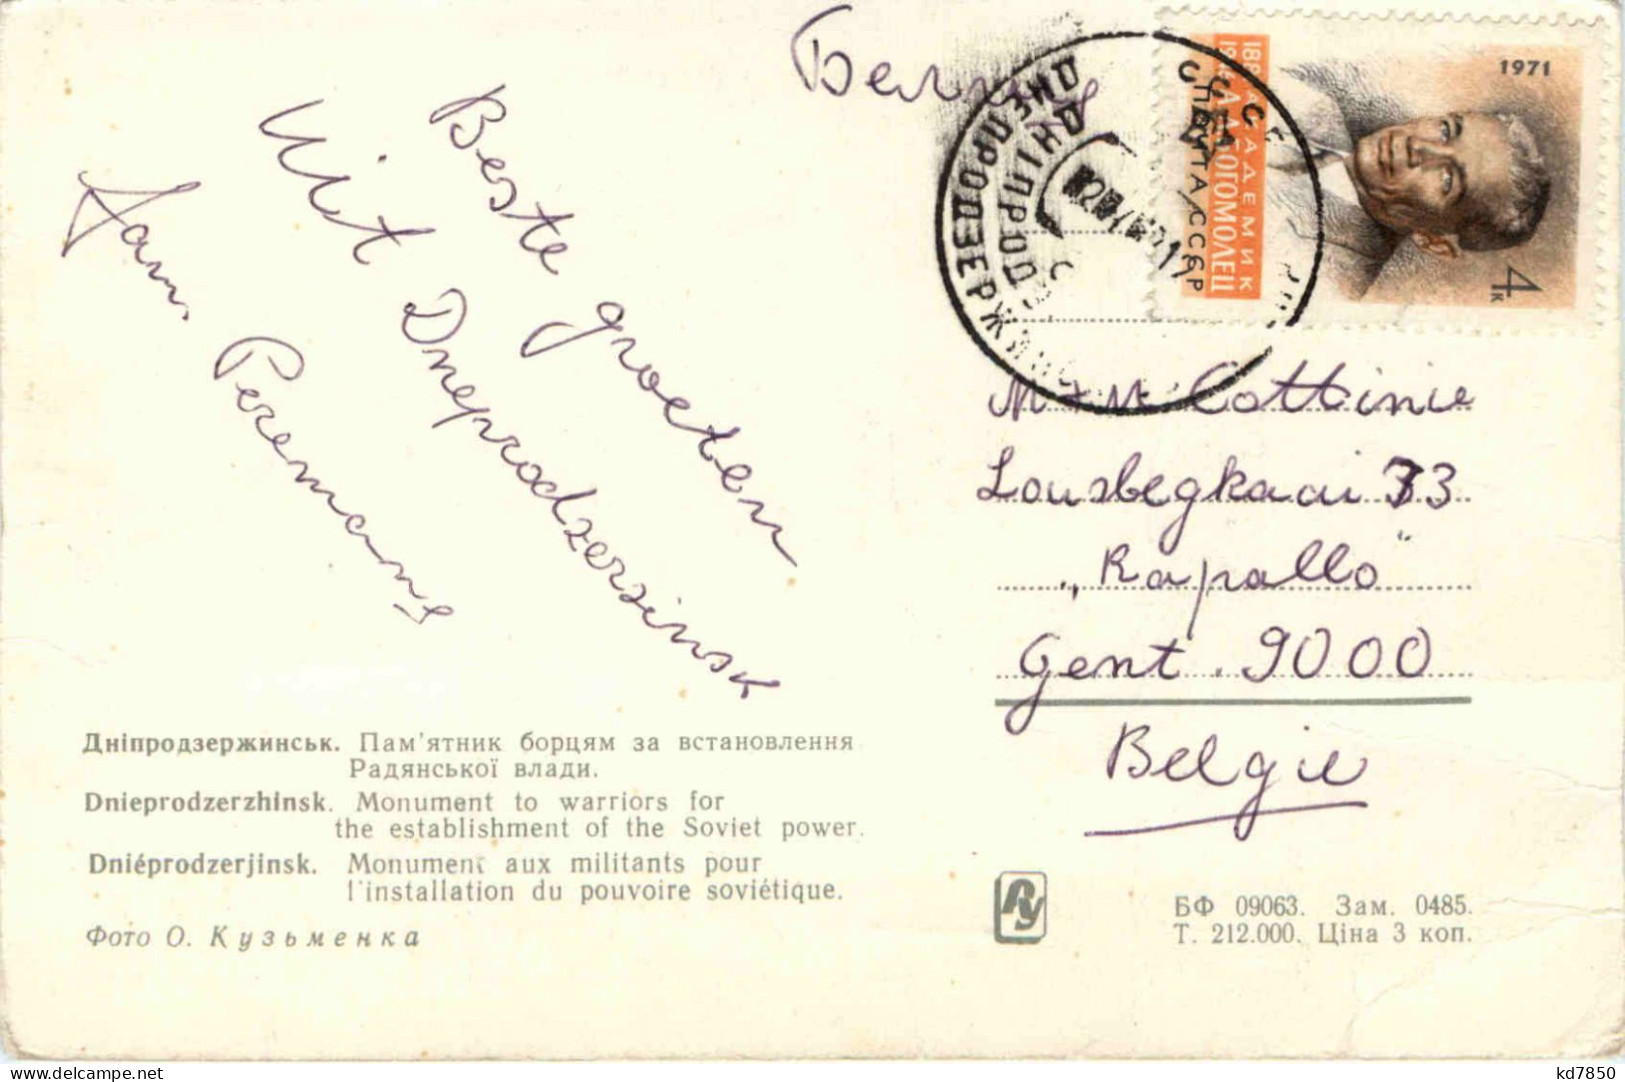 Бельгия
Beste groeten
Uit Dneprodzerzinsk
Jan Peremans
1971
АКАДЕМИК
А.А.БОГОМОЛЕЦ
4к
ПОШТА СССР
ДНЕПРОДЗЕРЖИНСК
M + M Cottinie
Lousbegkaai 73
„Rapallo"
Gent. 9000
Belgie
Дніпродзержинськ. Пам'ятник борцям за встановлення
Радянської влади.
Dnieprodzerzhinsk. Monument to warriors for
the establishment of the Soviet power.
Dniéprodzerjinsk. Monument aux militants pour
l'installation du pouvoire soviétique.
Фото О. Кузьменка
РУ
БФ 09063. Зам. 0485.
Т. 212.000. Ціна 3 коп.
www.delcampe.net
kd7850